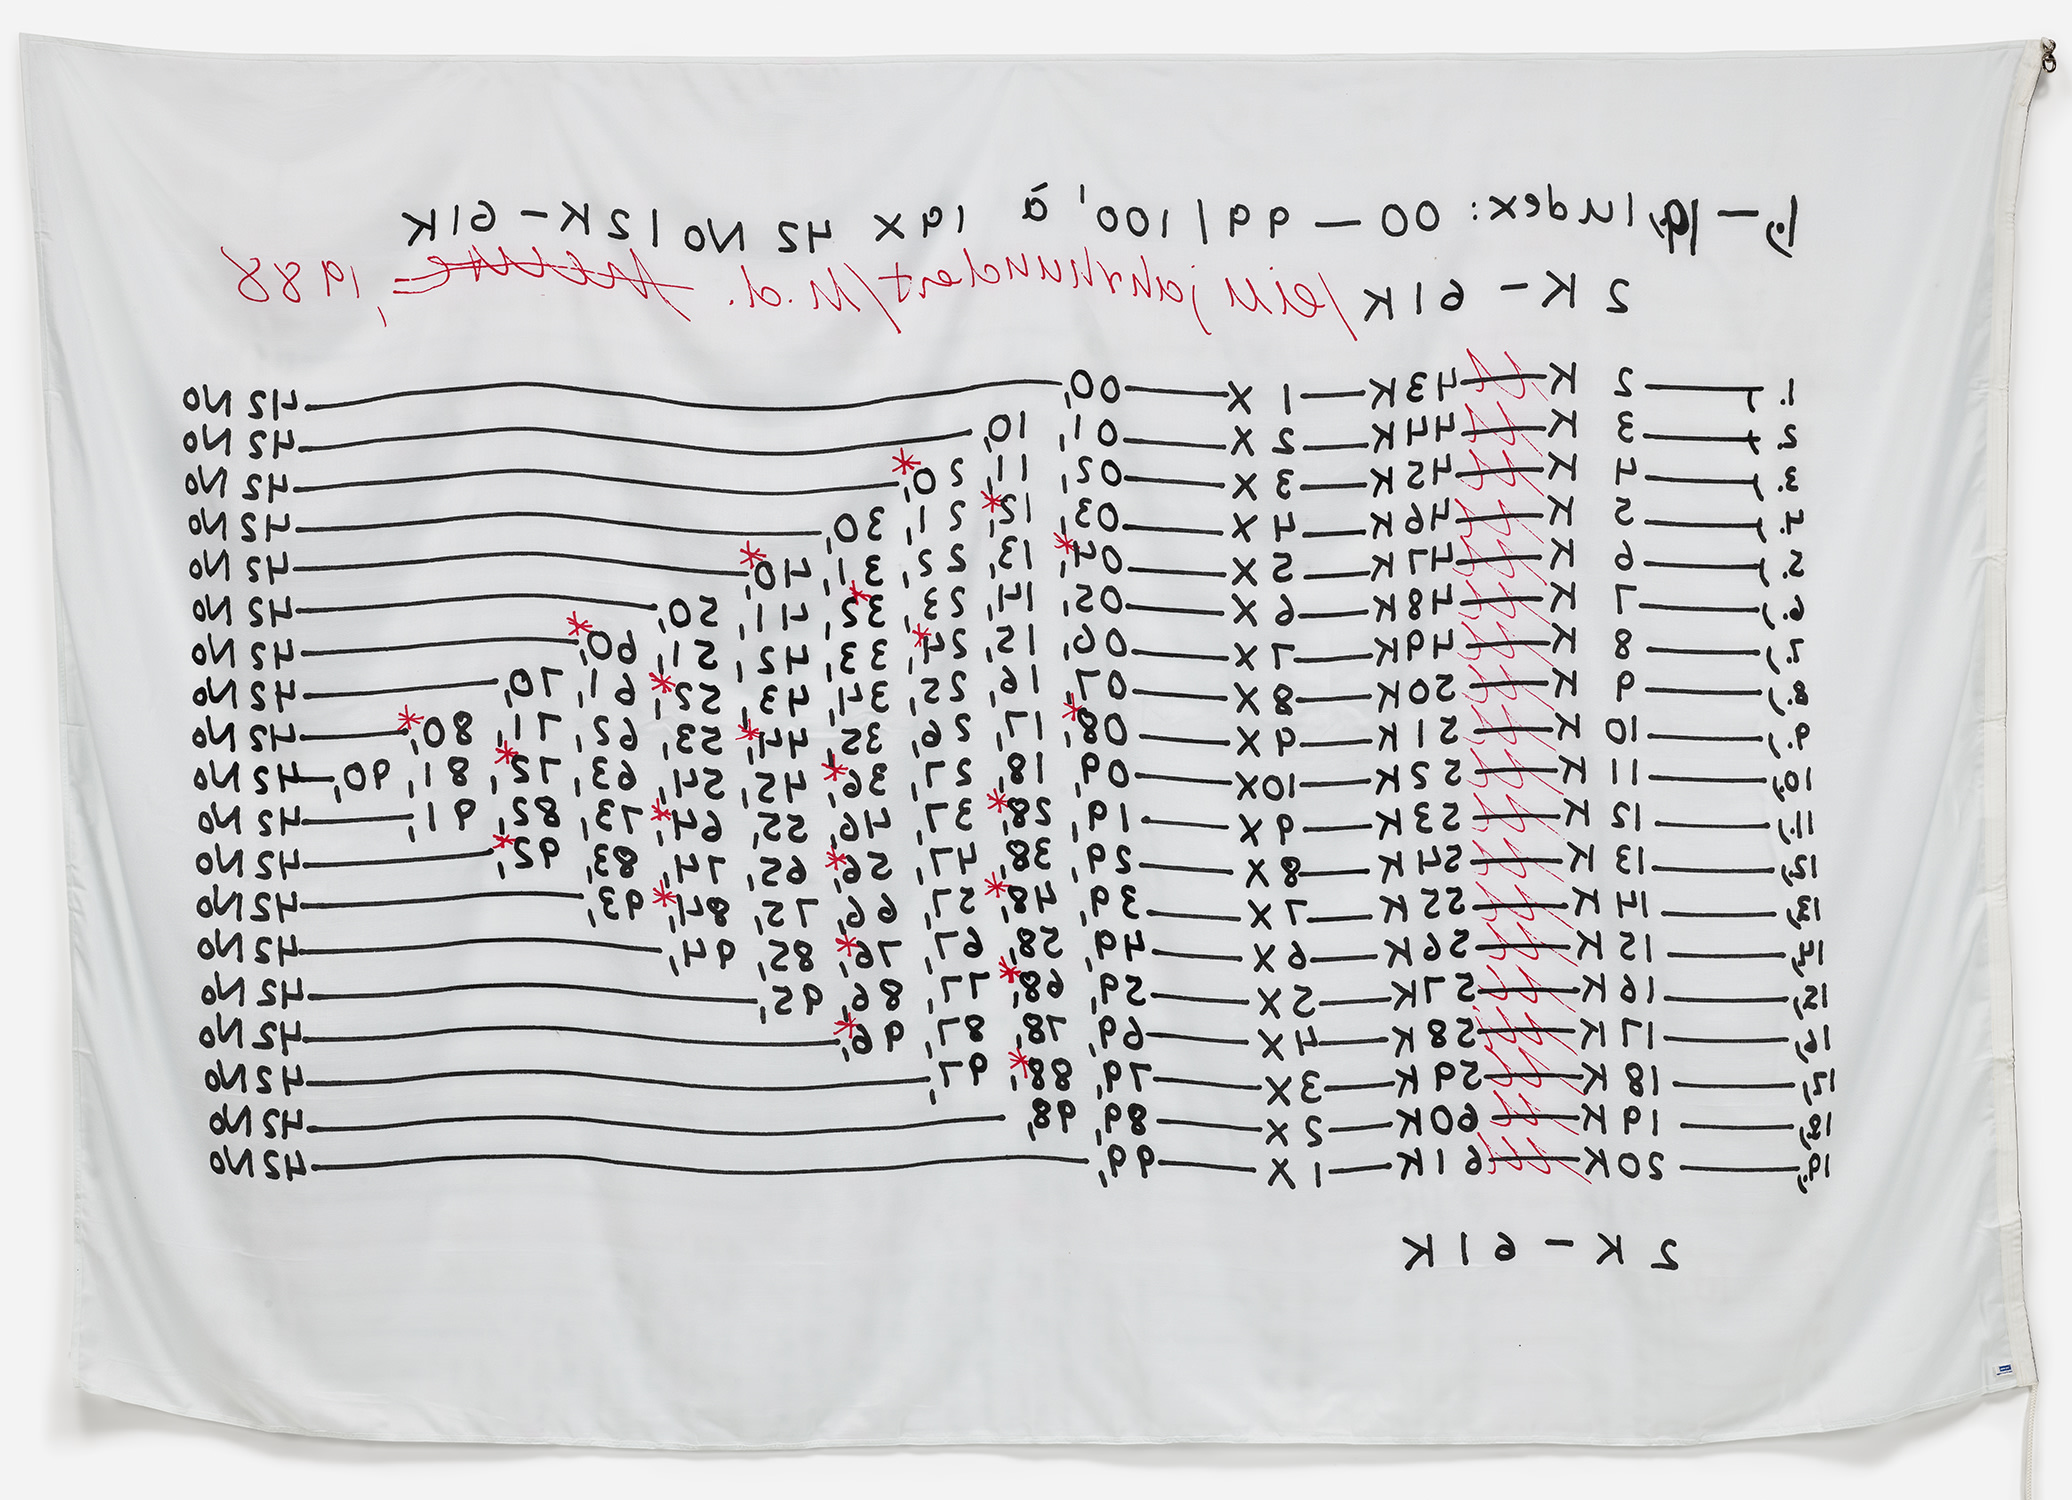 1.) – 19.) Index: 00 – 99/100, à 19x 42 No/2K – 61K
2 K – 61K /ein jahrhundert/H.d. heute =, 1988
1.) — 2 K — 43 K — 1 x — 00, — 42 No
2.) — 3 K — 44 K — 2 x — 01, 10, — 42 No
3.) — 4 K — 45 K — 3 x — 02, 11, 20,* — 42 No
4.) — 5 K — 46 K — 4 x — 03, 12,* 21, 30, — 42 No
5.) — 6 K — 47 K — 5 x — 04,* 13, 22, 31, 40,* — 42 No
6.) — 7 K — 48 K — 6 x — 05, 14, 23, 32,* 41, 50, — 42 No
7.) — 8 K — 49 K — 7 x — 06, 15, 24,* 33, 42, 51, 60,* — 42 No
8.) — 9 K — 50 K — 8 x — 07, 16, 25, 34, 43, 52,* 61, 70, — 42 No
9.) — 10 K — 51 K — 9 x — 08,* 17, 26, 35, 44,* 53, 62, 71, 80,* — 42 No
10.) — 11 K — 52 K — 10 x — 09, 18, 27, 36,* 45, 54, 63, 72,* 81, 90, — 42 No
11.) — 12 K — 53 K — 9 x — 19, 28,* 37, 46, 55, 64,* 73, 82, 91, — 42 No
12.) — 13 K — 54 K — 8 x — 29, 38, 47, 56,* 65, 74, 83, 92,* — 42 No
13.) — 14 K — 55 K — 7 x — 39, 48,* 57, 66, 75, 84,* 93, — 42 No
14.) — 15 K — 56 K — 6 x — 49, 58, 67, 76,* 85, 94, — 42 No
15.) — 16 K — 57 K — 5 x — 59, 68,* 77, 86, 95, — 42 No
16.) — 17 K — 58 K — 4 x — 69, 78, 87, 96,* — 42 No
17.) — 18 K — 59 K — 3 x — 79, 88,* 97, — 42 No
18.) — 19 K — 60 K — 2 x — 89, 98, — 42 No
19.) — 20 K — 61 K — 1 x — 99, — 42 No
2 K – 61K